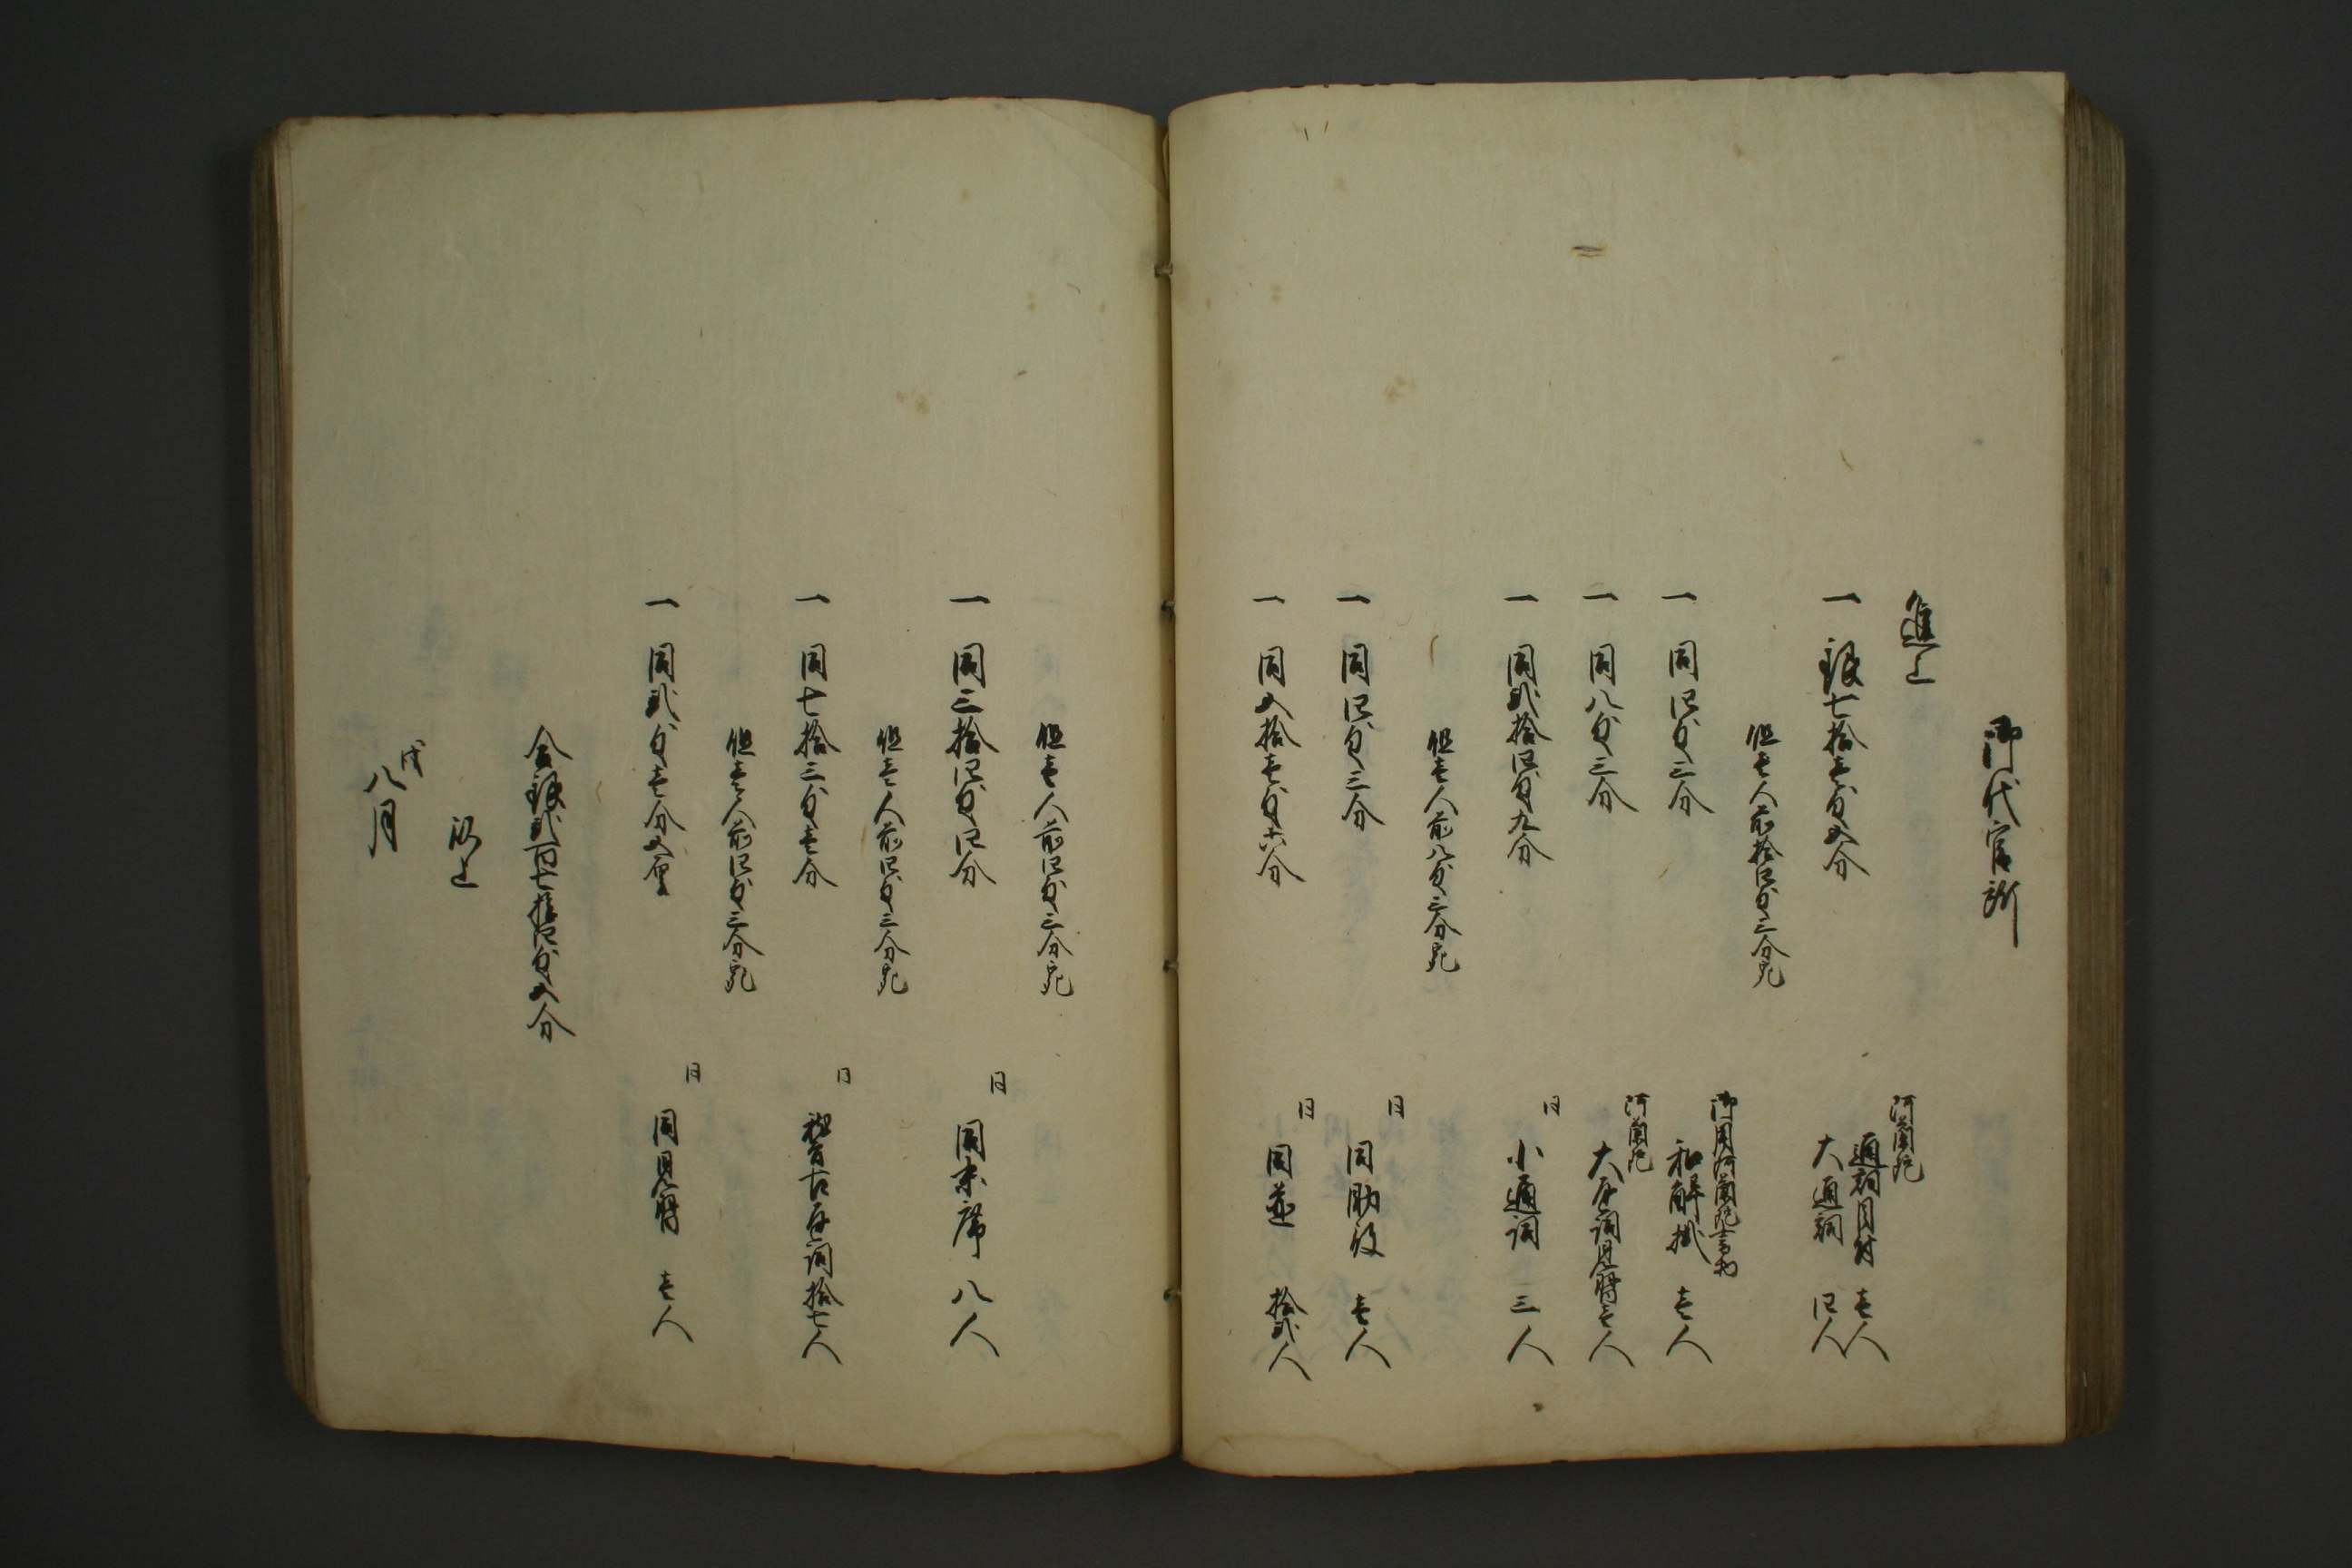 御代官所
進上
一 銀七拾壱匁五分
阿蘭陀
通詞目付 壱人
大通詞 四人
但壱人前拾四匁三分宛
一 同四匁三分
御用阿蘭陀書物
和解掛 壱人
一 同八匁三分
阿蘭陀
大通詞見習壱人
一 同弐拾四匁九分
同
小通詞 三人
但壱人前八匁三分宛
一 同四匁三分
同
同助役 壱人
一 同五拾壱匁六分
同
同並 拾弐人
但壱人前四匁三分宛
一 同三拾四匁四分
同
同末席 八人
但壱人前四匁三分宛
一 同七拾三匁壱分
同
稽古通詞拾七人
但壱人前四匁三分宛
一 同弐匁壱分五厘
同
同見習 壱人
合銀弐百七拾四匁五分
以上
戌
八月